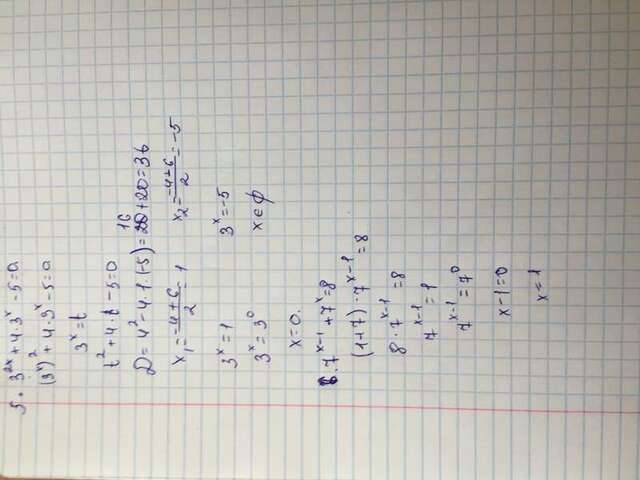 5. 3^{2x} + 4·3^x - 5 = 0
(3^x)^2 + 4·3^x - 5 = 0
3^x = t
t^2 + 4·t - 5 = 0
D = 4^2 - 4·1·(-5) = 16 + 20 = 36
x_1 = \frac{-4+6}{2} = 1 x_2 = \frac{-4±6}{2} = -5
3^x = 1 3^x = -5
3^x = 3^0 x ∈ ϕ
x = 0.
6. 7^{x-1} + 7^x = 8
(1+7)·7^{x-1} = 8
8·7^{x-1} = 8
7^{x-1} = 1
7^{x-1} = 7^0
x-1 = 0
x = 1